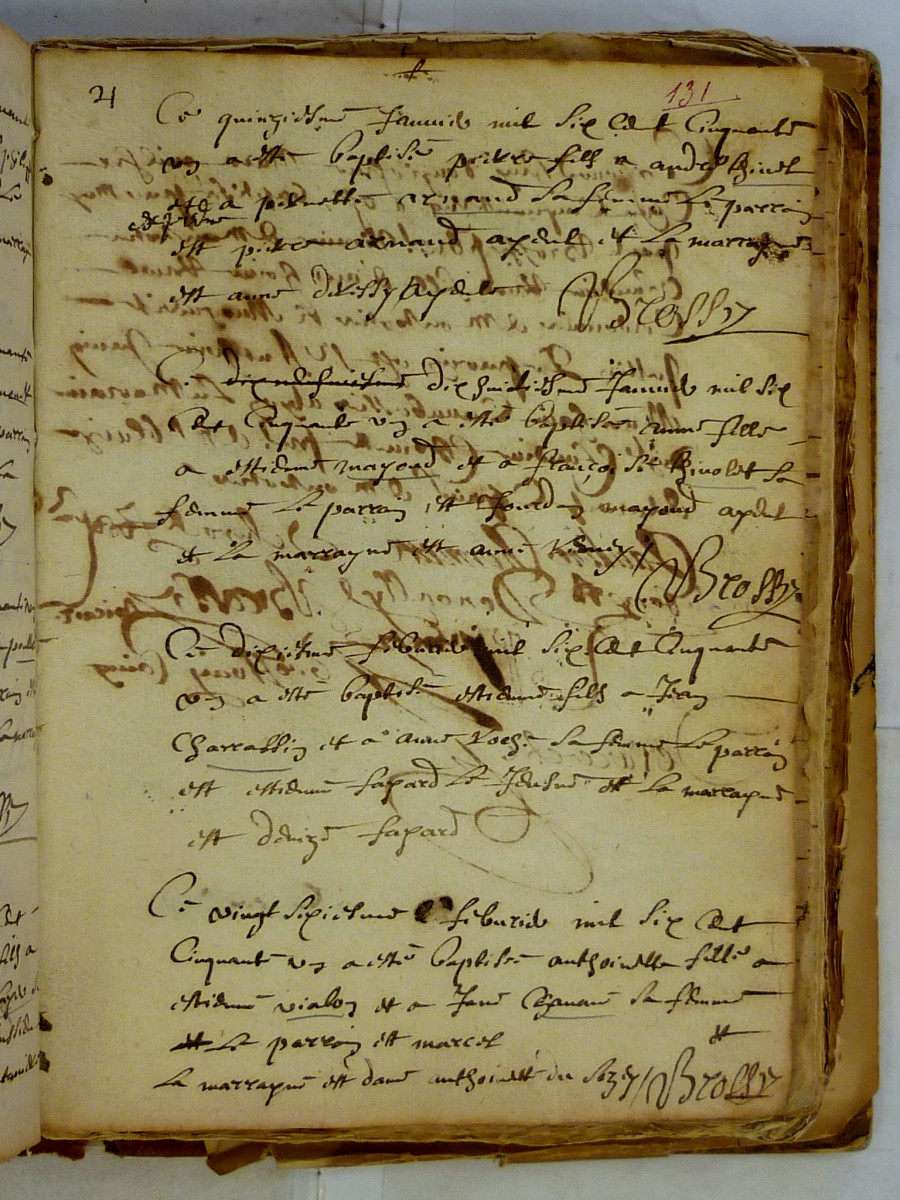 21
131
Ce quinziesme Januier mil six cent Cinquante
un a esté baptisé pierre fils a andré
et a pernette arnaud sa femme Le parrain
est pierre arnaud ayeul et La marrayne
est anne ayeule Brossy
Ce dixhuitiesme Januier mil six
cent Cinquante un a esté baptisée anne fille
a estienne mayoud et a françoise Rivolet sa
femme Le parrain est Jourdan mayoud ayeul
et La marrayne est anne Brossy
Ce dixiesme feburier mil six cent Cinquante
un a esté baptisé estienne fils a Jean
Charrassin et a anne sa femme Le parrain
est estienne fayard Le Jeusne et La marrayne
est denize fayard
Ce vingt sixiesme feburier mil six cent
Cinquante un a esté baptisée anthoinette fille a
estienne vialon et a Jane sa femme
et Le parrain est marcel et
La marrayne est dame anthoinette du Brossy